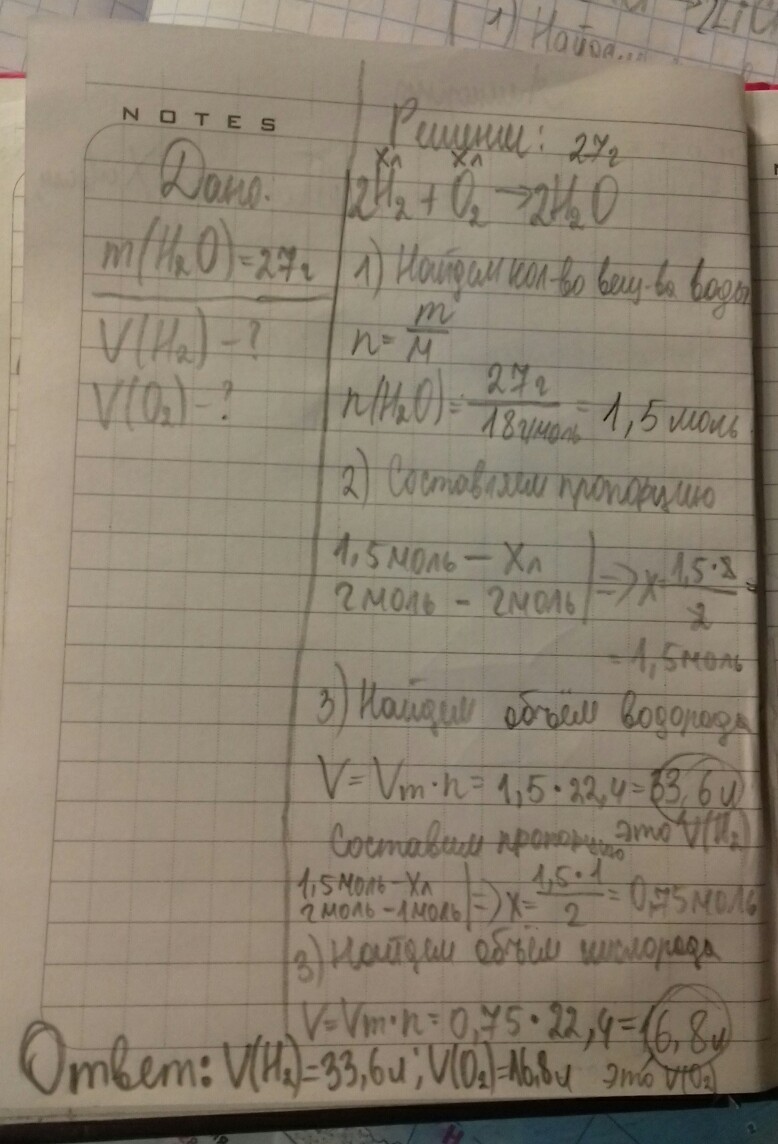 1) Найдём
NOTES
Дано:
m(H₂O)=27г
V(H₂)-?
V(O₂)-?
Решение: 27г
Xл Xл
2H₂+O₂→2H₂O
1) Найдем кол-во вещ-ва воды
n=m/M
n(H₂O)=27г/18г/моль=1,5 моль
2) Составляем пропорцию
1,5моль-Xл
2моль-2моль |=>X=1,5·2/2=
=1,5моль
3) Найдем объём водорода
V=Vm·n=1,5·22,4=33,6л
Составим пропорцию это V(H₂)
1,5моль-Xл
2моль-1моль |=>X=1,5·1/2=0,75моль
3) Найдем объём кислорода
V=Vm·n=0,75·22,4=16,8л
Ответ: V(H₂)=33,6л; V(O₂)=16,8л это V(O₂)